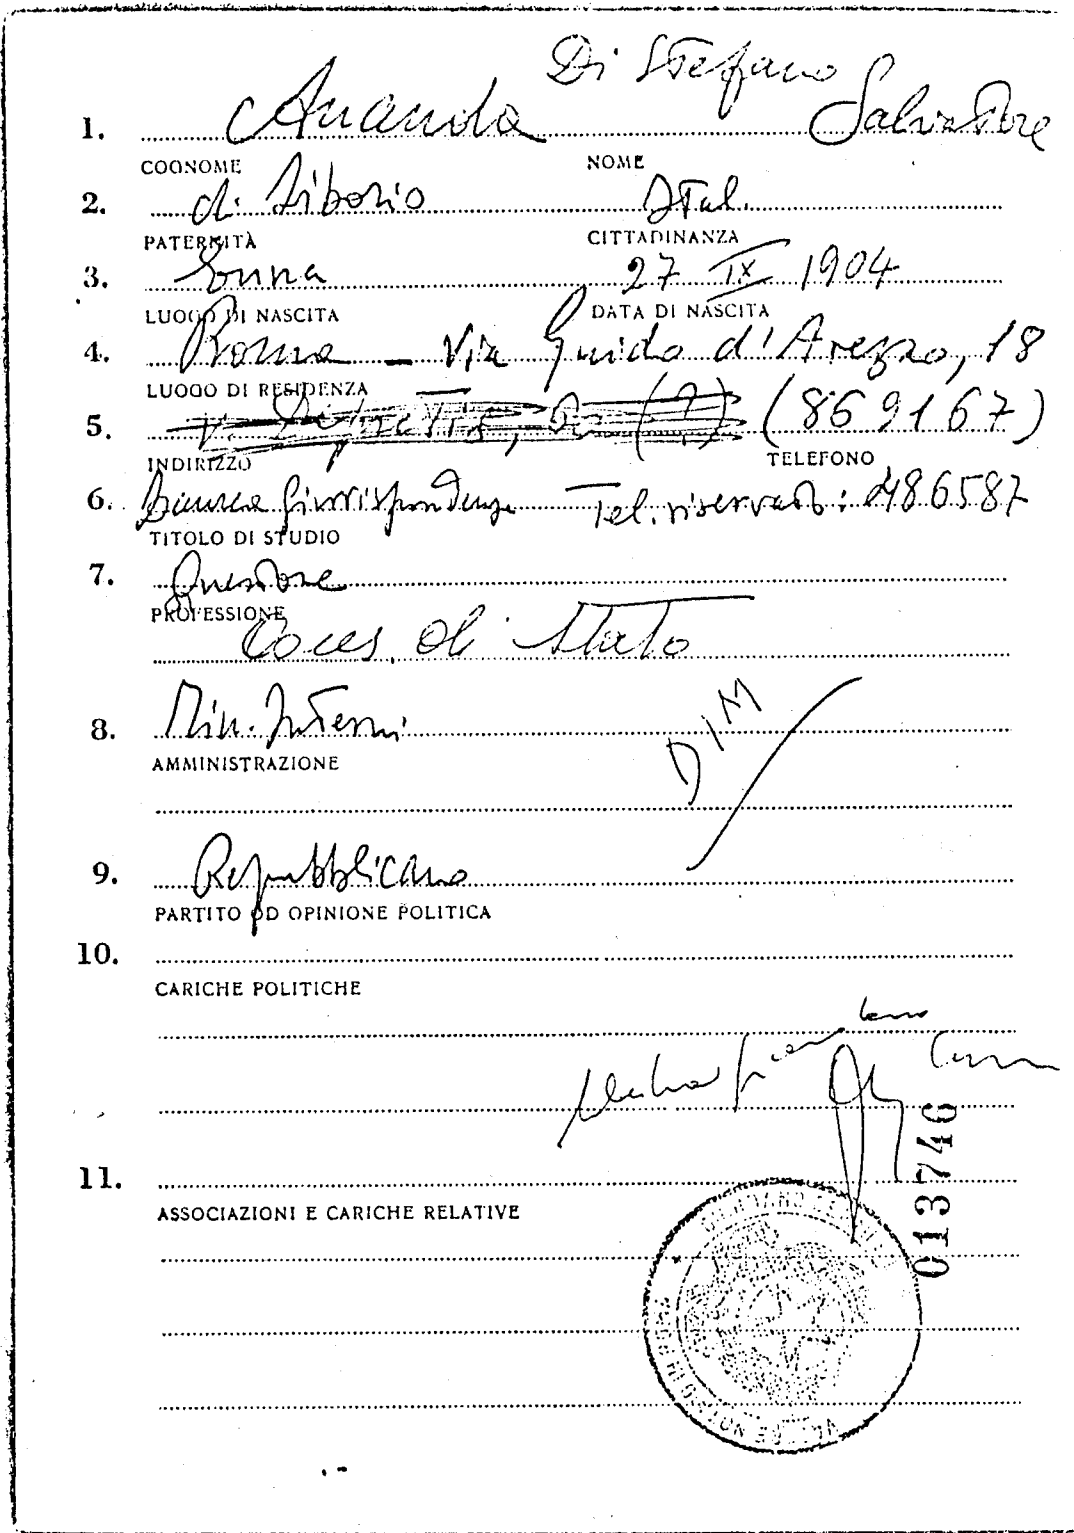 Di Stefano
1. Salvatore
COGNOME NOME
2. di Liborio Ital.
PATERNITÀ CITTADINANZA
3. Enna 27 IX 1904
LUOGO DI NASCITA DATA DI NASCITA
4. Roma - Via Guido d'Arezzo, 18
LUOGO DI RESIDENZA
5. (869167)
INDIRIZZO TELEFONO
6. Laurea Giurispondenza Tel. riservato: 486587
TITOLO DI STUDIO
7. Questore
PROFESSIONE
di Stato
8. Min. Interni
DIM
AMMINISTRAZIONE
9. Repubblicano
PARTITO OD OPINIONE POLITICA
10.
CARICHE POLITICHE
013746
11.
ASSOCIAZIONI E CARICHE RELATIVE